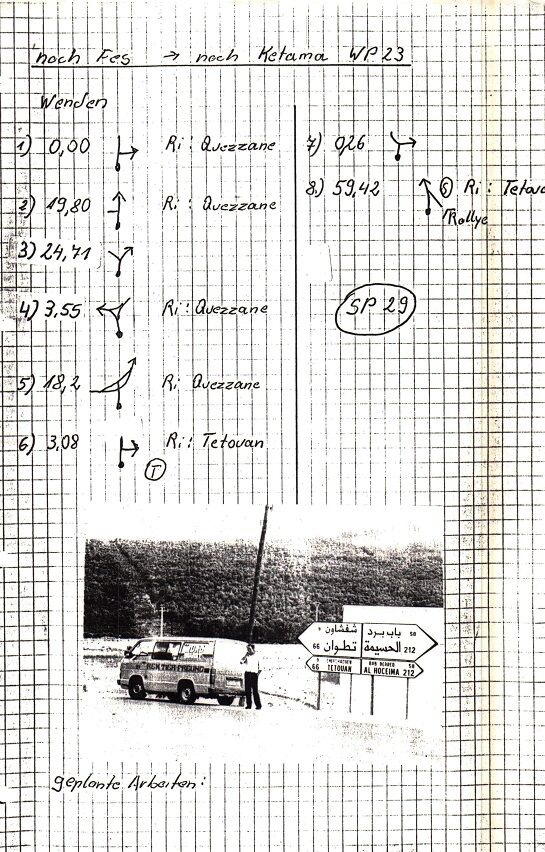 noch Fes → noch Ketama WP 23
Wenden
1) 0,00 Ri: Quezzane
2) 19,80 Ri: Quezzane
3) 24,71
4) 3,55 Ri: Quezzane
5) 18,2 Ri Quezzane
6) 3,08 Ri: Tetouan
T
7) 0,26
8.) 59,42 S Ri: Tetoua
Rallye
SP 29
شفشاون 9
تطوان 66
باب برد 50
الحسيمة 212
9 CHEFCHAOUEN
66 TETOUAN
BAB BERRED 50
AL HOCEIMA 212
geplante Arbeiten: